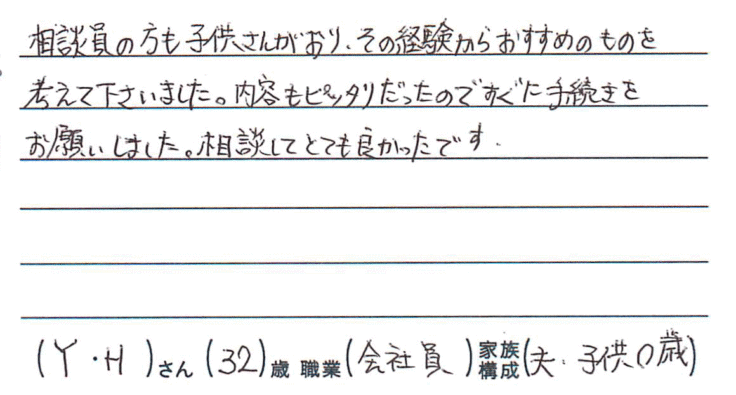 相談員の方も子供さんがおり、その経験からおすすめのものを
考えて下さいました。内容もピッタリだったのですぐに手続きを
お願いしました。相談してとても良かったです.
(Y・H)さん(32)歳 職業(会社員)家族構成(夫・子供0歳)